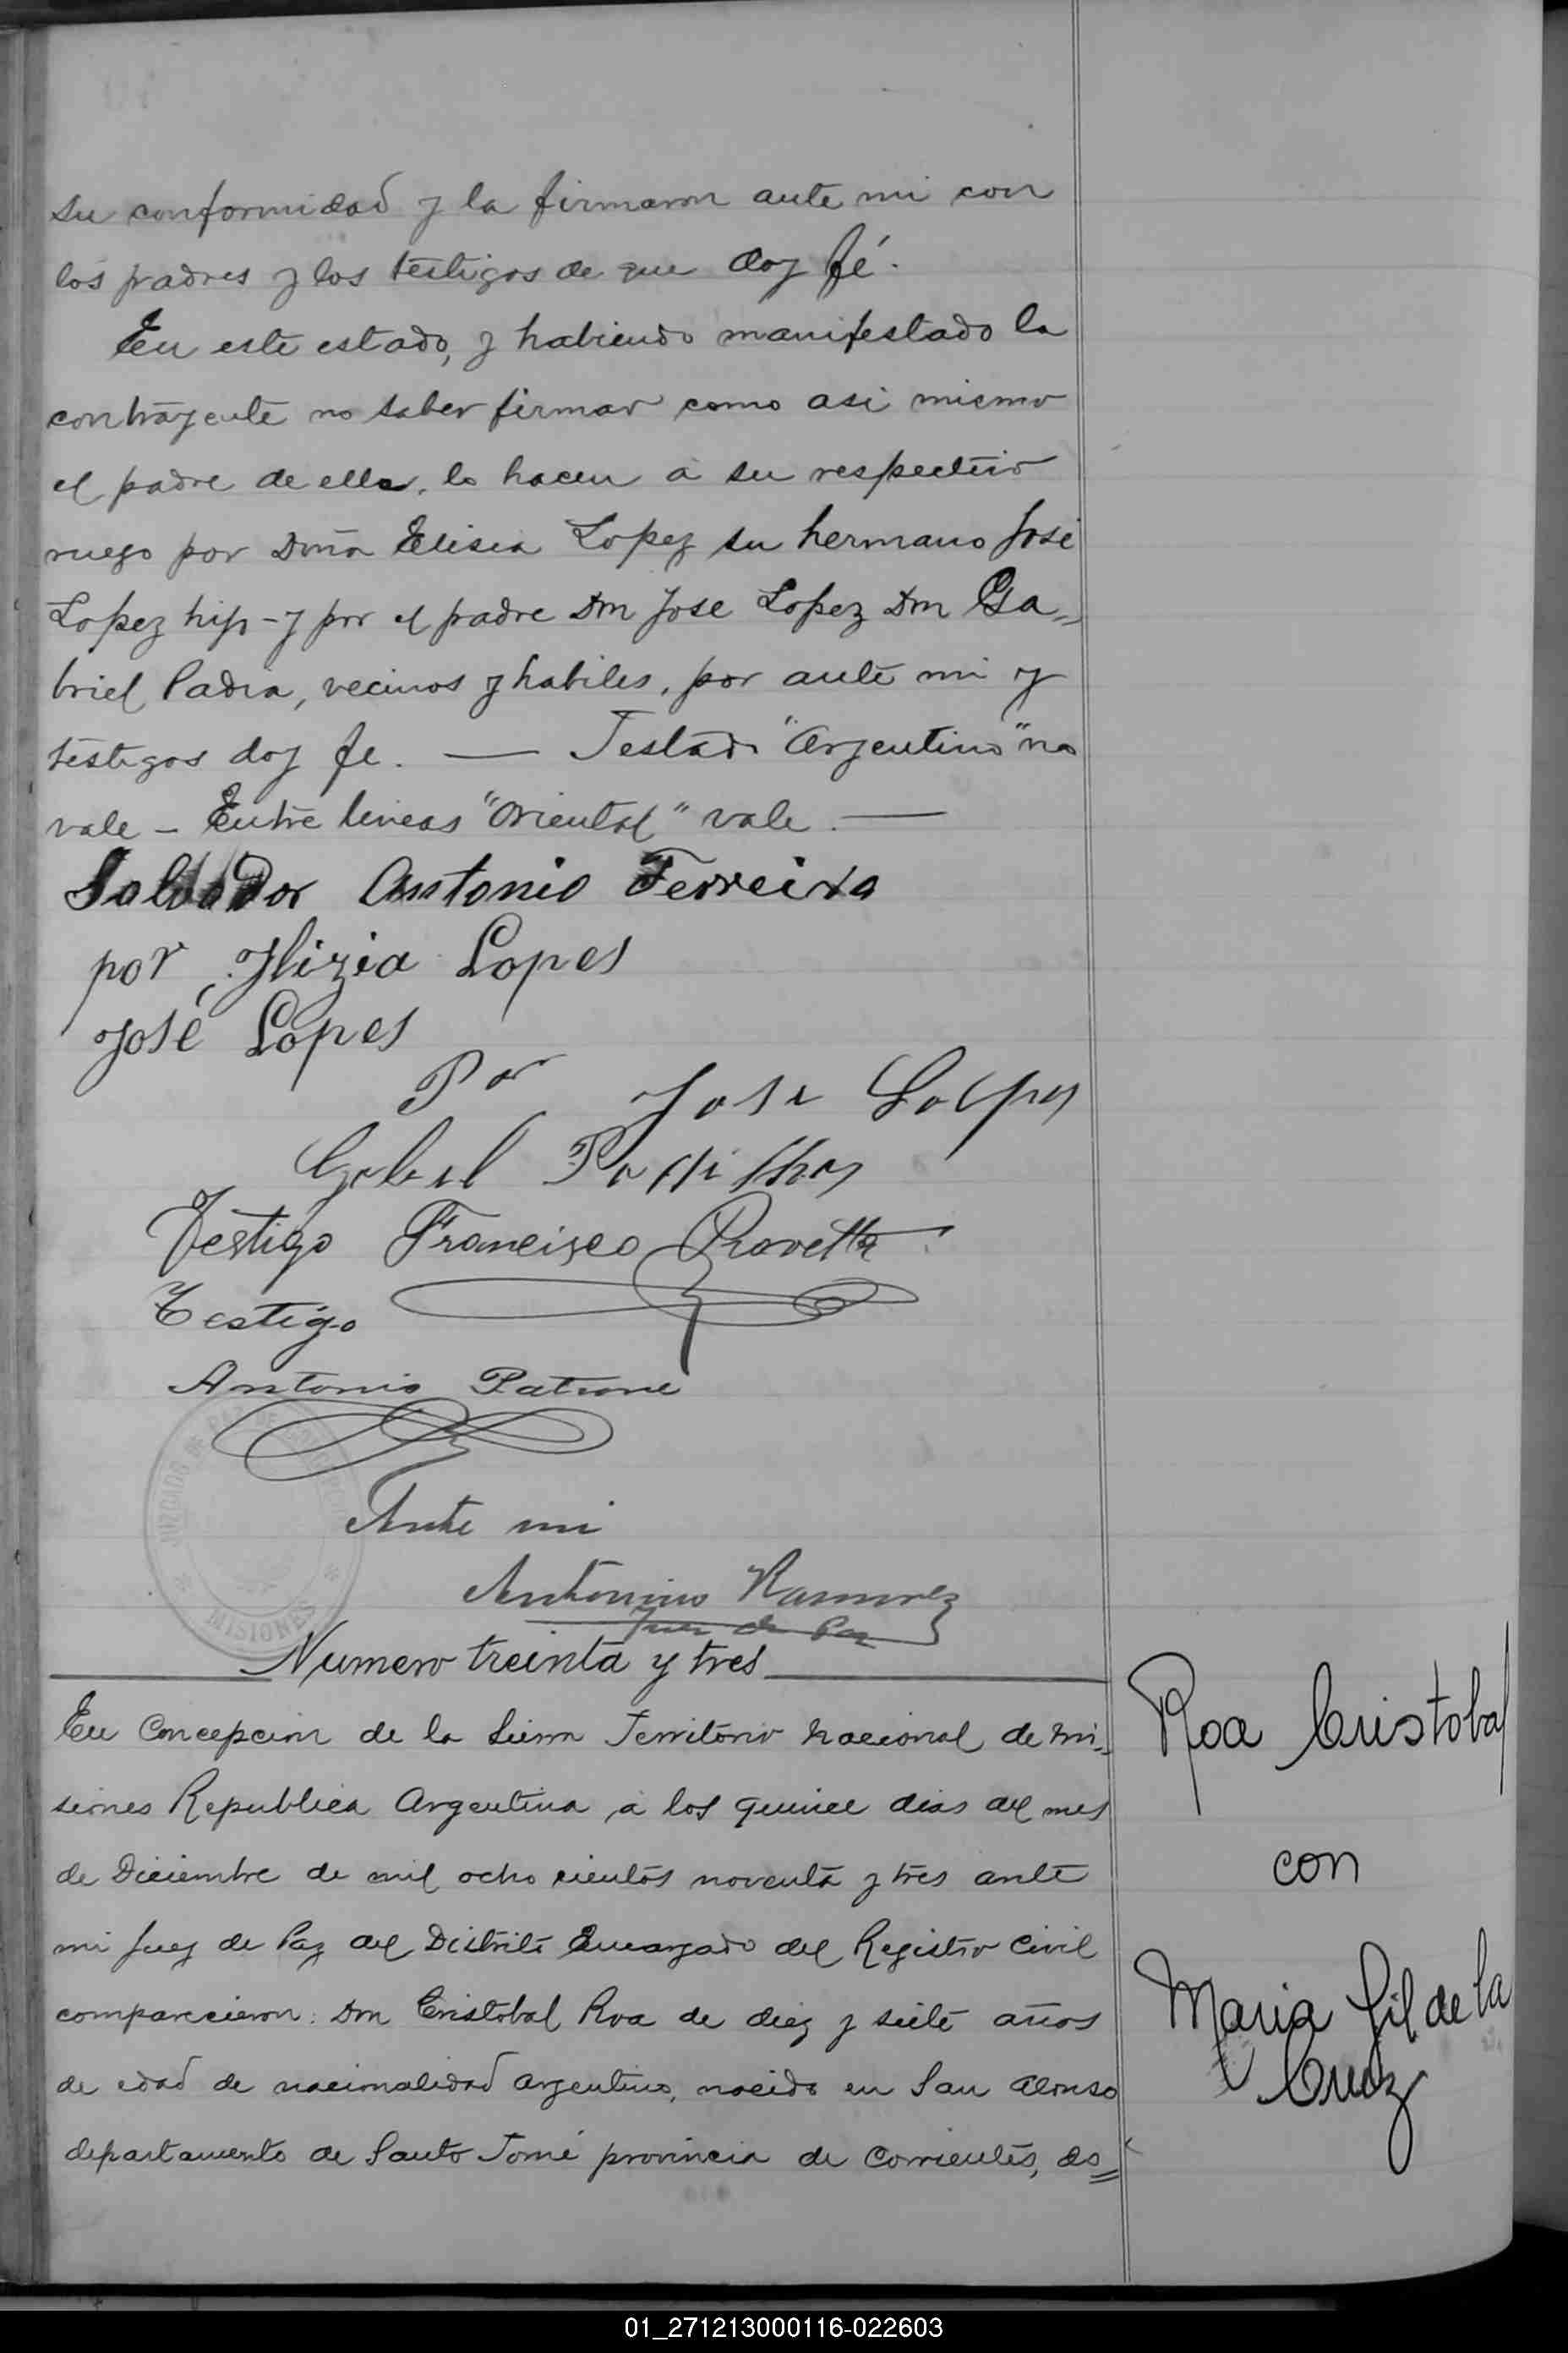 su conformidad y la firmaron ante mi con
los padres y los testigos de que doy fé.
En este estado, y habiendo manifestado la
contrayente no saber firmar como asi mismo
el padre de ella, lo hacen a su respectivo
ruego por Doña Elisia Lopez su hermano José
Lopez hijo - y por el padre Don Jose Lopez Don Ga=
briel Padia, vecinos y habiles, por ante mi y
testigos doy fe. — Testado "Argentino" no
vale - Entre lineas "Oriental" vale. —
Salvador Antonio Ferreira
por Ilizia Lopes
José Lopes
Por Jose Lopes
Gabriel Padilha
Testigo Francisco Ravetta
Testigo
Antonio Patrone
JUZGADO DE PAZ DE
MISIONES
Ante mi
Antonino Ramirez
Juez de Paz
Numero treinta y tres
Roa Cristobal
con
Maria Gil de la
Cruz
En Concepcion de la Sierra Territorio Nacional de Mi=
siones Republica Argentina a los quince dias del mes
de Diciembre de mil ocho cientos noventa y tres ante
mi Juez de Paz del Distrito Encargado del Registro Civil
comparecieron: Don Cristobal Roa de diez y siete años
de edad de nacionalidad argentino, nacido en San Alonso
departamento de Santo Tomé provincia de Corrientes, do=
01_271213000116-022603